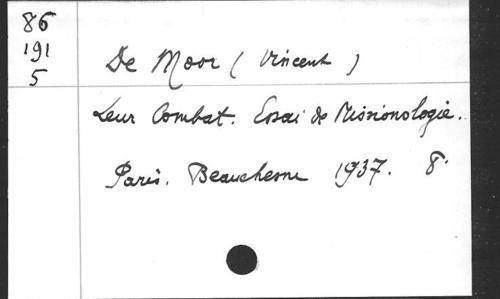 86
191
5
De Moor (Vincent)
Leur Combat. Essai de Missionologie.
Paris. Beauchesne 1937. 8°